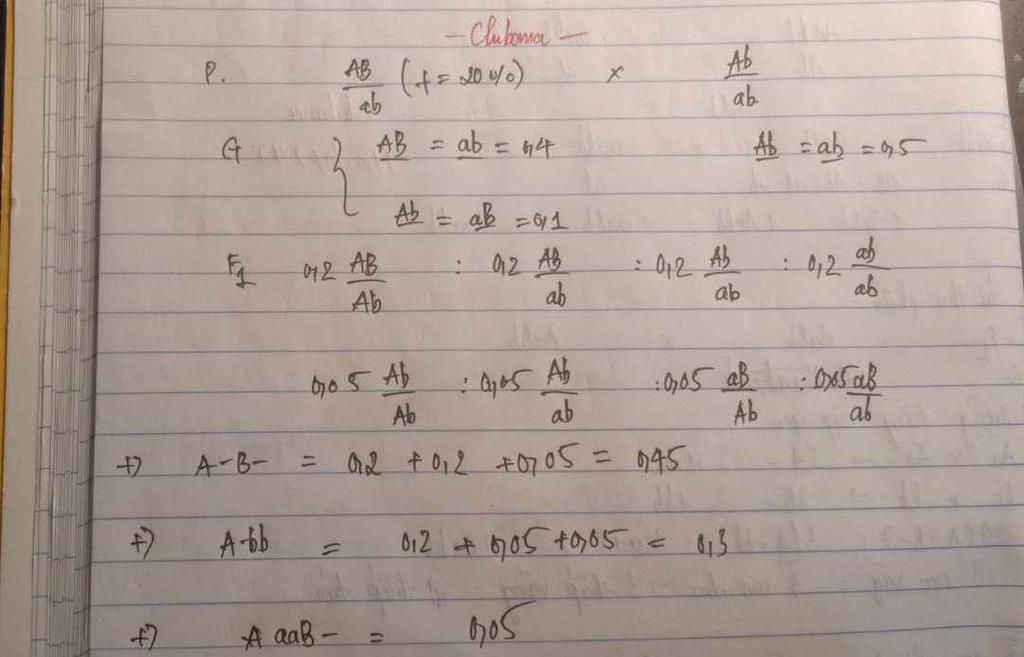 - Chuboma -
P. AB/ab (f = 20%) x Ab/ab
G { AB = ab = 0,4 Ab = ab = 0,5
Ab = aB = 0,1
F1 0,2 AB/Ab : 0,2 AB/ab : 0,2 Ab/ab : 0,2 ab/ab
0,05 Ab/Ab : 0,05 Ab/ab : 0,05 aB/Ab : 0,05 aB/ab
+) A-B- = 0,2 + 0,2 + 0,05 = 0,45
+) A-bb = 0,2 + 0,05 + 0,05 = 0,3
+) A aaB- = 0,05